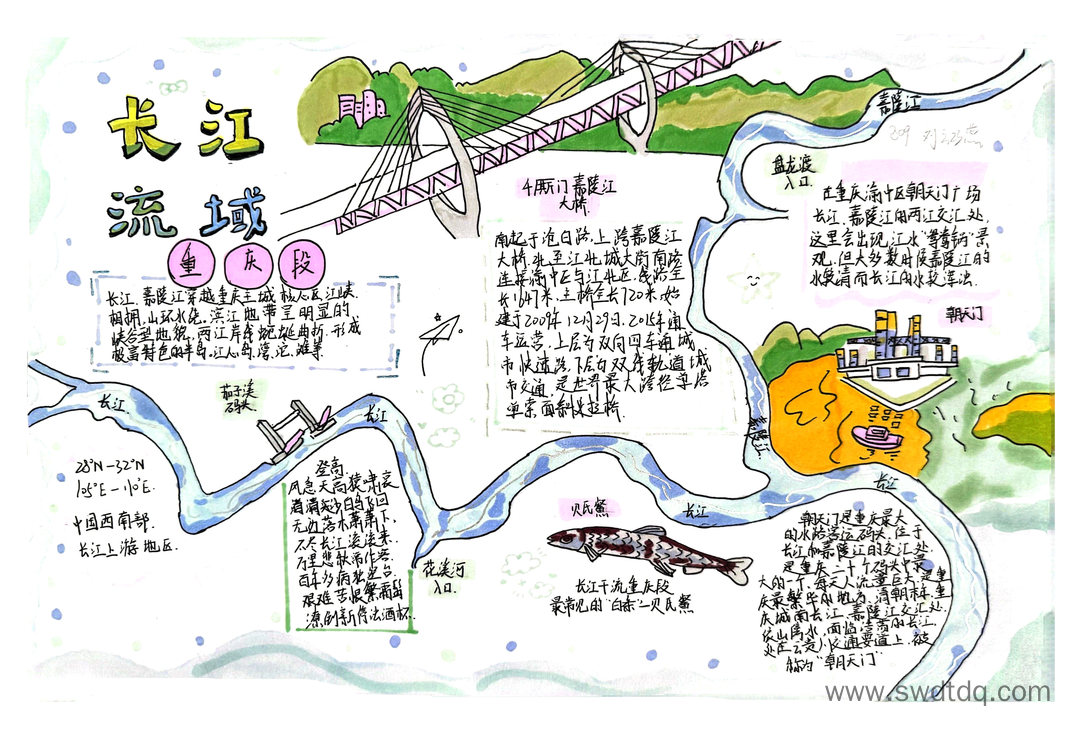 长江
流域
重庆段
长江、嘉陵江穿越重庆主城核心区,江峡
相拥,山环水绕。滨江地带呈明显的
峡谷型地貌,两江岸线蜿蜒曲折,形成
极富特色的半岛、江心岛、湾、沱、滩等
茄子溪
码头
长江
长江
28°N—32°N
105°E—110°E.
中国西南部.
长江上游地区.
登高
风急天高猿啸哀
渚清沙白鸟飞回
无边落木萧萧下,
不尽长江滚滚来.
万里悲秋常作客
百年多病独登台.
艰难苦恨繁霜鬓
潦倒新停浊酒杯.
花溪河
入口.
嘉陵江
大桥.
南起于沧白路,上跨嘉陵江
大桥,北至江北城大街南路
连接渝中区与江北区,线路全
长1.647米,主桥全长720米,始
建于2009年12月29日,2015年通
车运营,上层为双向四车道城
市快速路,下层为双线轨道城
市交通,是世界最大跨径单塔
单索面斜拉桥.
嘉陵江
盘龙渡
入口.
在重庆渝中区朝天门广场
长江、嘉陵江的两江交汇处,
这里会出现江水"鸳鸯锅"景
观,但大多数时候嘉陵江的
水较清而长江的水较浑浊.
朝天门
嘉陵江
长江
长江
贝氏䱗
长江干流重庆段
最常见的"白条"—贝氏䱗
朝天门是重庆最大
的水路客运码头,位于
长江和嘉陵江的交汇处
是重庆二十个码头中最
大的一个,每天人流量巨大,是重
庆最繁华的地方,清朝末年,重
庆城南长江、嘉陵江交汇处,
称为"朝天门"
www.swdtdq.com